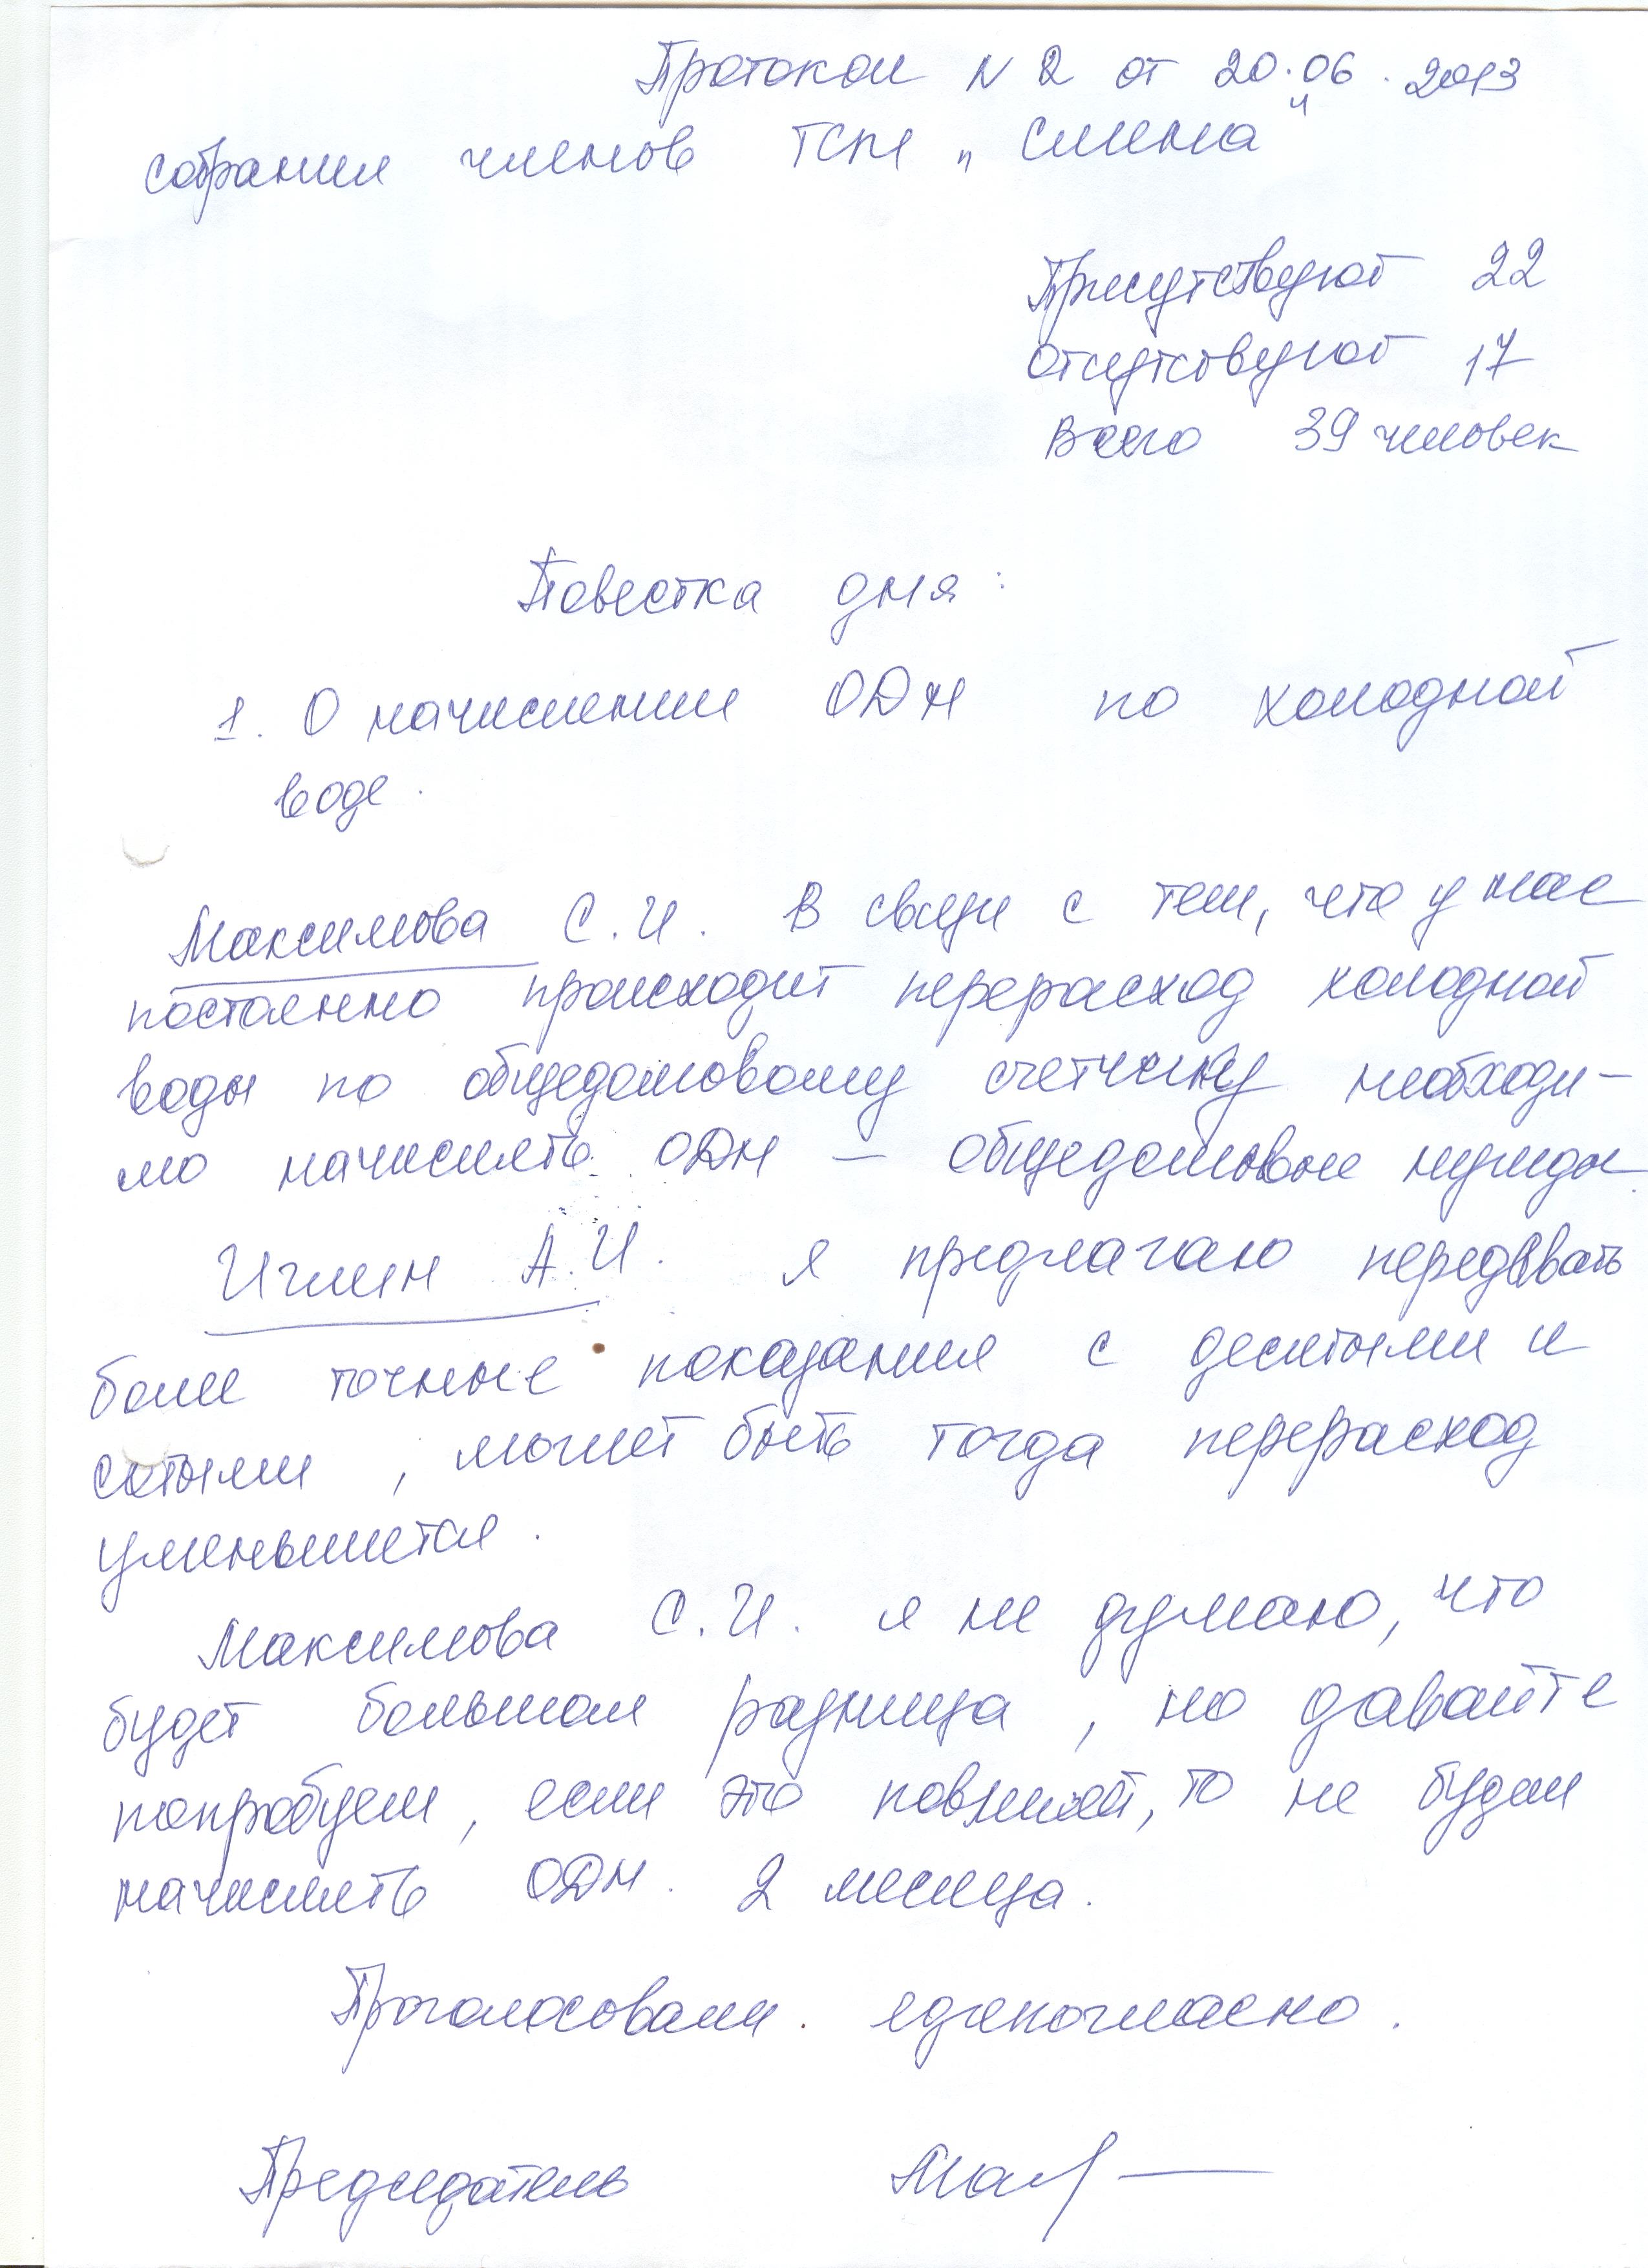 Протокол N 2 от 20.06.2013
собрания членов ТСЖ „Смена"
Присутствуют 22
Отсутствуют 17
Всего 39 человек
Повестка дня:
1. О начислении ОДН по холодной
воде.
Максимова С.И. В связи с тем, что у нас
постоянно происходит перерасход холодной
воды по общедомовому счетчику необходи-
мо начислять ОДН – общедомовые нужды.
Иглин А.И. я предлагаю передавать
более точные показания с десятыми и
сотыми, может быть тогда перерасход
уменьшится.
Максимова С.И. я не думаю, что
будет большая разница, но давайте
попробуем, если это повлияет, то не будем
начислять ОДН. 2 месяца.
Проголосовали. единогласно.
Председатель